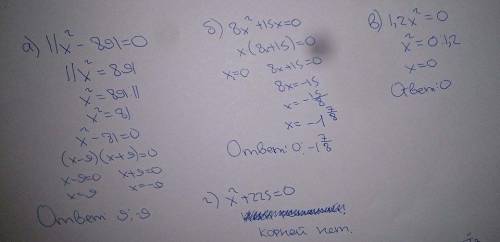 а) 11x² - 891=0
11x² = 891
x² = 891:11
x² = 81
x² - 81=0
(x-9)(x+9)=0
x-9=0 x+9=0
x=9 x=-9
Ответ: 9; -9
б) 8x²+15x=0
x(8x+15)=0
x=0 8x+15=0
8x=-15
x=-15/8
x=-1 7/8
Ответ: 0; -1 7/8
в) 1,2x²=0
x²=0:1,2
x=0
Ответ: 0
г) x²+225=0
корней нет.